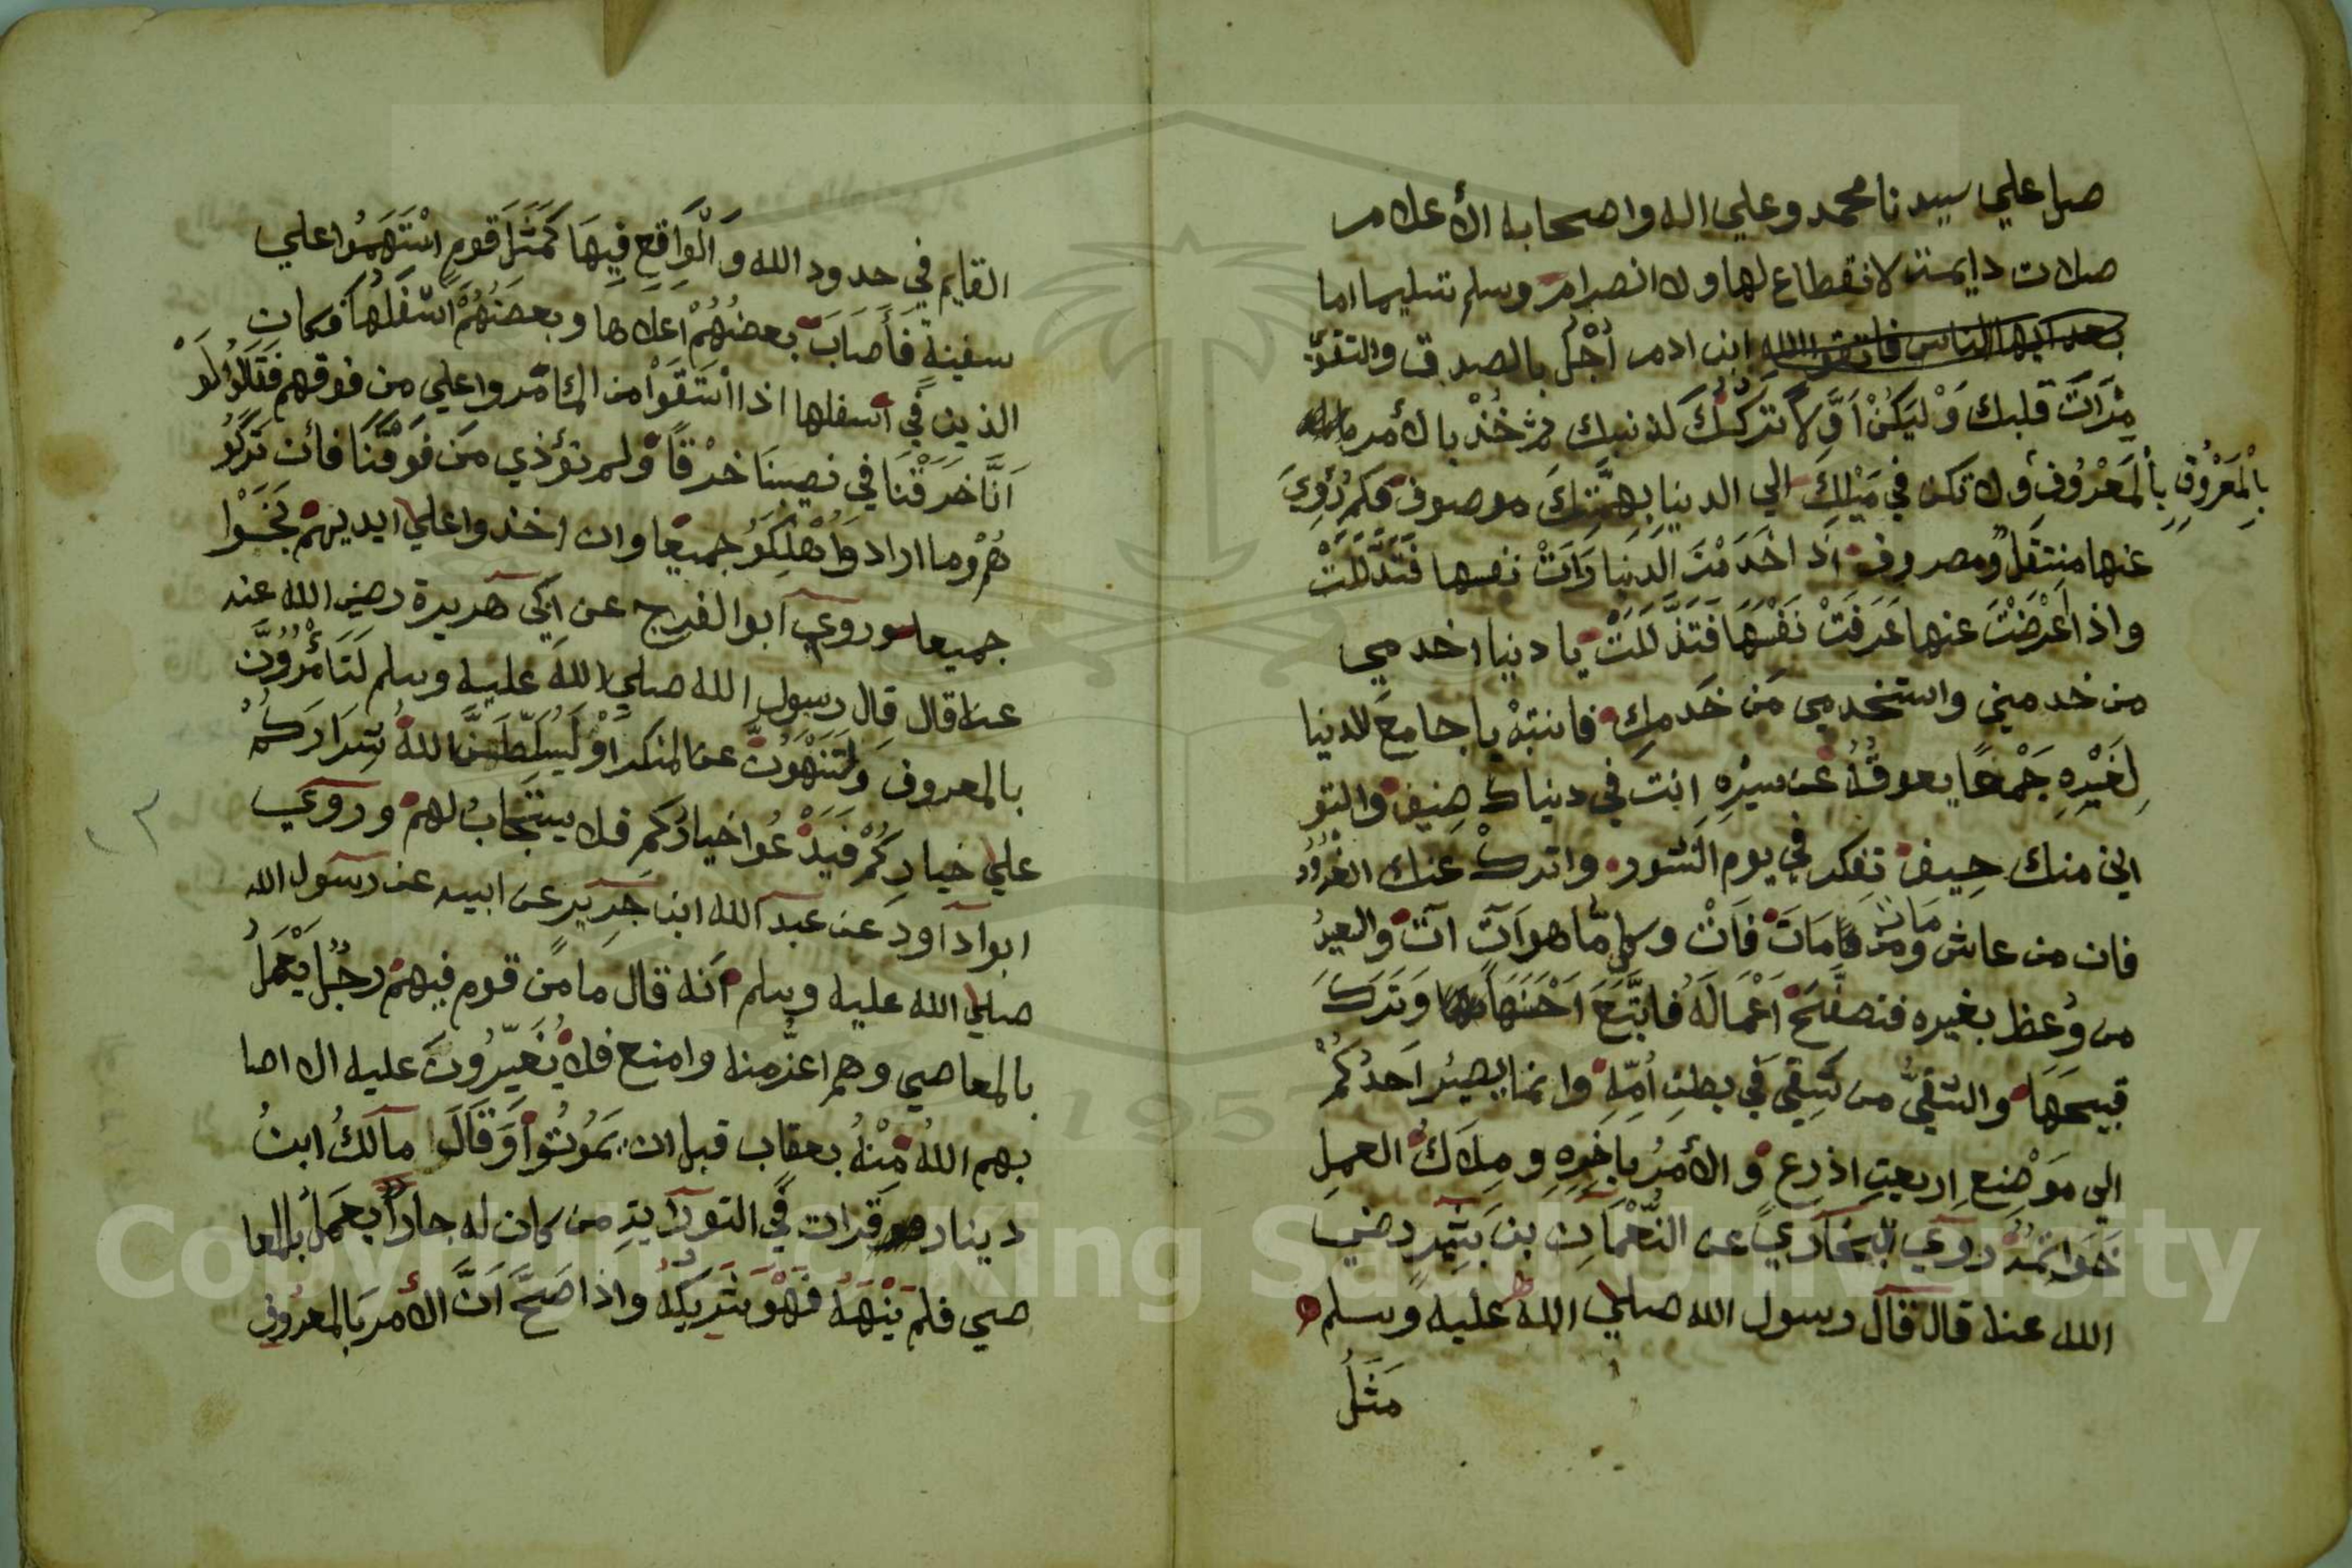 صل علي سيدنا محمد وعلي اله واصحابه الأعلام
صلات دايمة لانقطاع لها ولا انصرام وسلم تسليما اما
بعد ايها الناس فاتقوا الله ابن ادم أجل بالصدق والتقوّ
مِرَاتَ قلبك وَلْيَكُنْ اَوَّلاً تركُكَ لذنبك ثم خُذْ بالأمر
بِالْمَعْرُوفِ بِالْمَعْرُوفِ ولا تكن في مَيْلِكَ الي الدنيا بِهِمَّتِكَ موصوف فكم رُؤِيَ
عنها منتقلٌ ومصروف اذا خَدَمْتَ الدنيا رَاَتْ نفسها فَتَدَلَّلَتْ
واذا اَعْرَضْتَ عنها عَرَفَتْ نَفْسَهَا فَتَذَلَّلَتْ يا دنيا اخدمي
من خدمني واستخدمي مَن خَدمكِ فانتبهْ يا جامعَ للدنيا
لِغَيْرِهِ جَمْعًا يعوقُهُ عن سيْرِهِ انت في دنياك ضيف والتو
اني منك حيف تفكر في يوم النشور واترك عنك الغرُور
فان من عاش مات ومن مَاتَ فَاتْ وكل مّا هو اَتٍ آتْ والسعيدُ
من وُعظ بغيره فتصفَّحَ اَعْمَالَهُ فاتَّبَعَ اَحْسَنَهَا وَتَرَكَ
قبيحَهَا والشقيُّ من شَقِيَ في بطنِ اُمِّهِ وانما يصيرُ اَحدُكُمْ
الي مَوْضِعِ اربعت اذرع والأمرُ باَخِرِهِ ومِلاَكُ العملِ
خَوَاتمُهُ رَوَي البخاري عن النُّعْمَانِ بن بَشِير رضي
الله عنه قال قال رسول الله صلي الله عليه وسلم
مَثَلُ
القايم في حدود الله وَالْوَاقِعِ فِيهَا كَمَثَلِ قومٍ اسْتَهَمُوا علي
سفينةٍ فَأَصَابَ بعضُهُمْ اعلاها وبعضُهُمْ اسْفَلَهَا فكان
الذين في اسفلها اذا اسْتَقَوْا من الما مّروا علي من فوقهم فقالُوا لَوْ
اَنَّا خَرَقْنَا في نصيبنَا خرْقًا ولم نؤذي مَن فَوقَنَا فأن تَرَكُو
هُمْ وما ارادوا هَلَكَوُ جميعًا وان اخذوا علي ايديهمْ نَجَوْا
جميعا وروي ابوا لفرج عن اَبي هريرة رضي الله عنه
عنه قال قال رسول الله صلي الله عليه وسلم لَتَأْمُرُونَّ
بالمعروف وَلَتَنْهَوُنَّ عن المنكر اوْ لَيُسَلِّطَنَّ اللهُ شِرَارَكُمْ
علي خيارِكُمْ فَيَدْعُوا خيارُكم فلا يستَجابُ لهمْ وروي
ابوا داود عن عبد الله ابن جَرِيرٍ عن ابيه عن رسول الله
صلي الله عليه وسلم اَنه قال ما من قوم فيهمْ رجُلٌ يَعْمَلُ
بالمعاصي وهم اعزُّ منه وامنع فلا يُغَيِّرُونَ عليه الا اصا
بهم اللهُ مِنْهُ بعقاب قبل ان يَمُوتُوا وَقَالَ مالكُ ابنُ
دينار قرات في التوراية من كان له جارًا يعْمَلُ بالمعا
صي فلم يَنْهَهُ فَهُوَ شَرِيكُهُ واذا صَحَّ اَنَّ الأمر بالمعرُوف